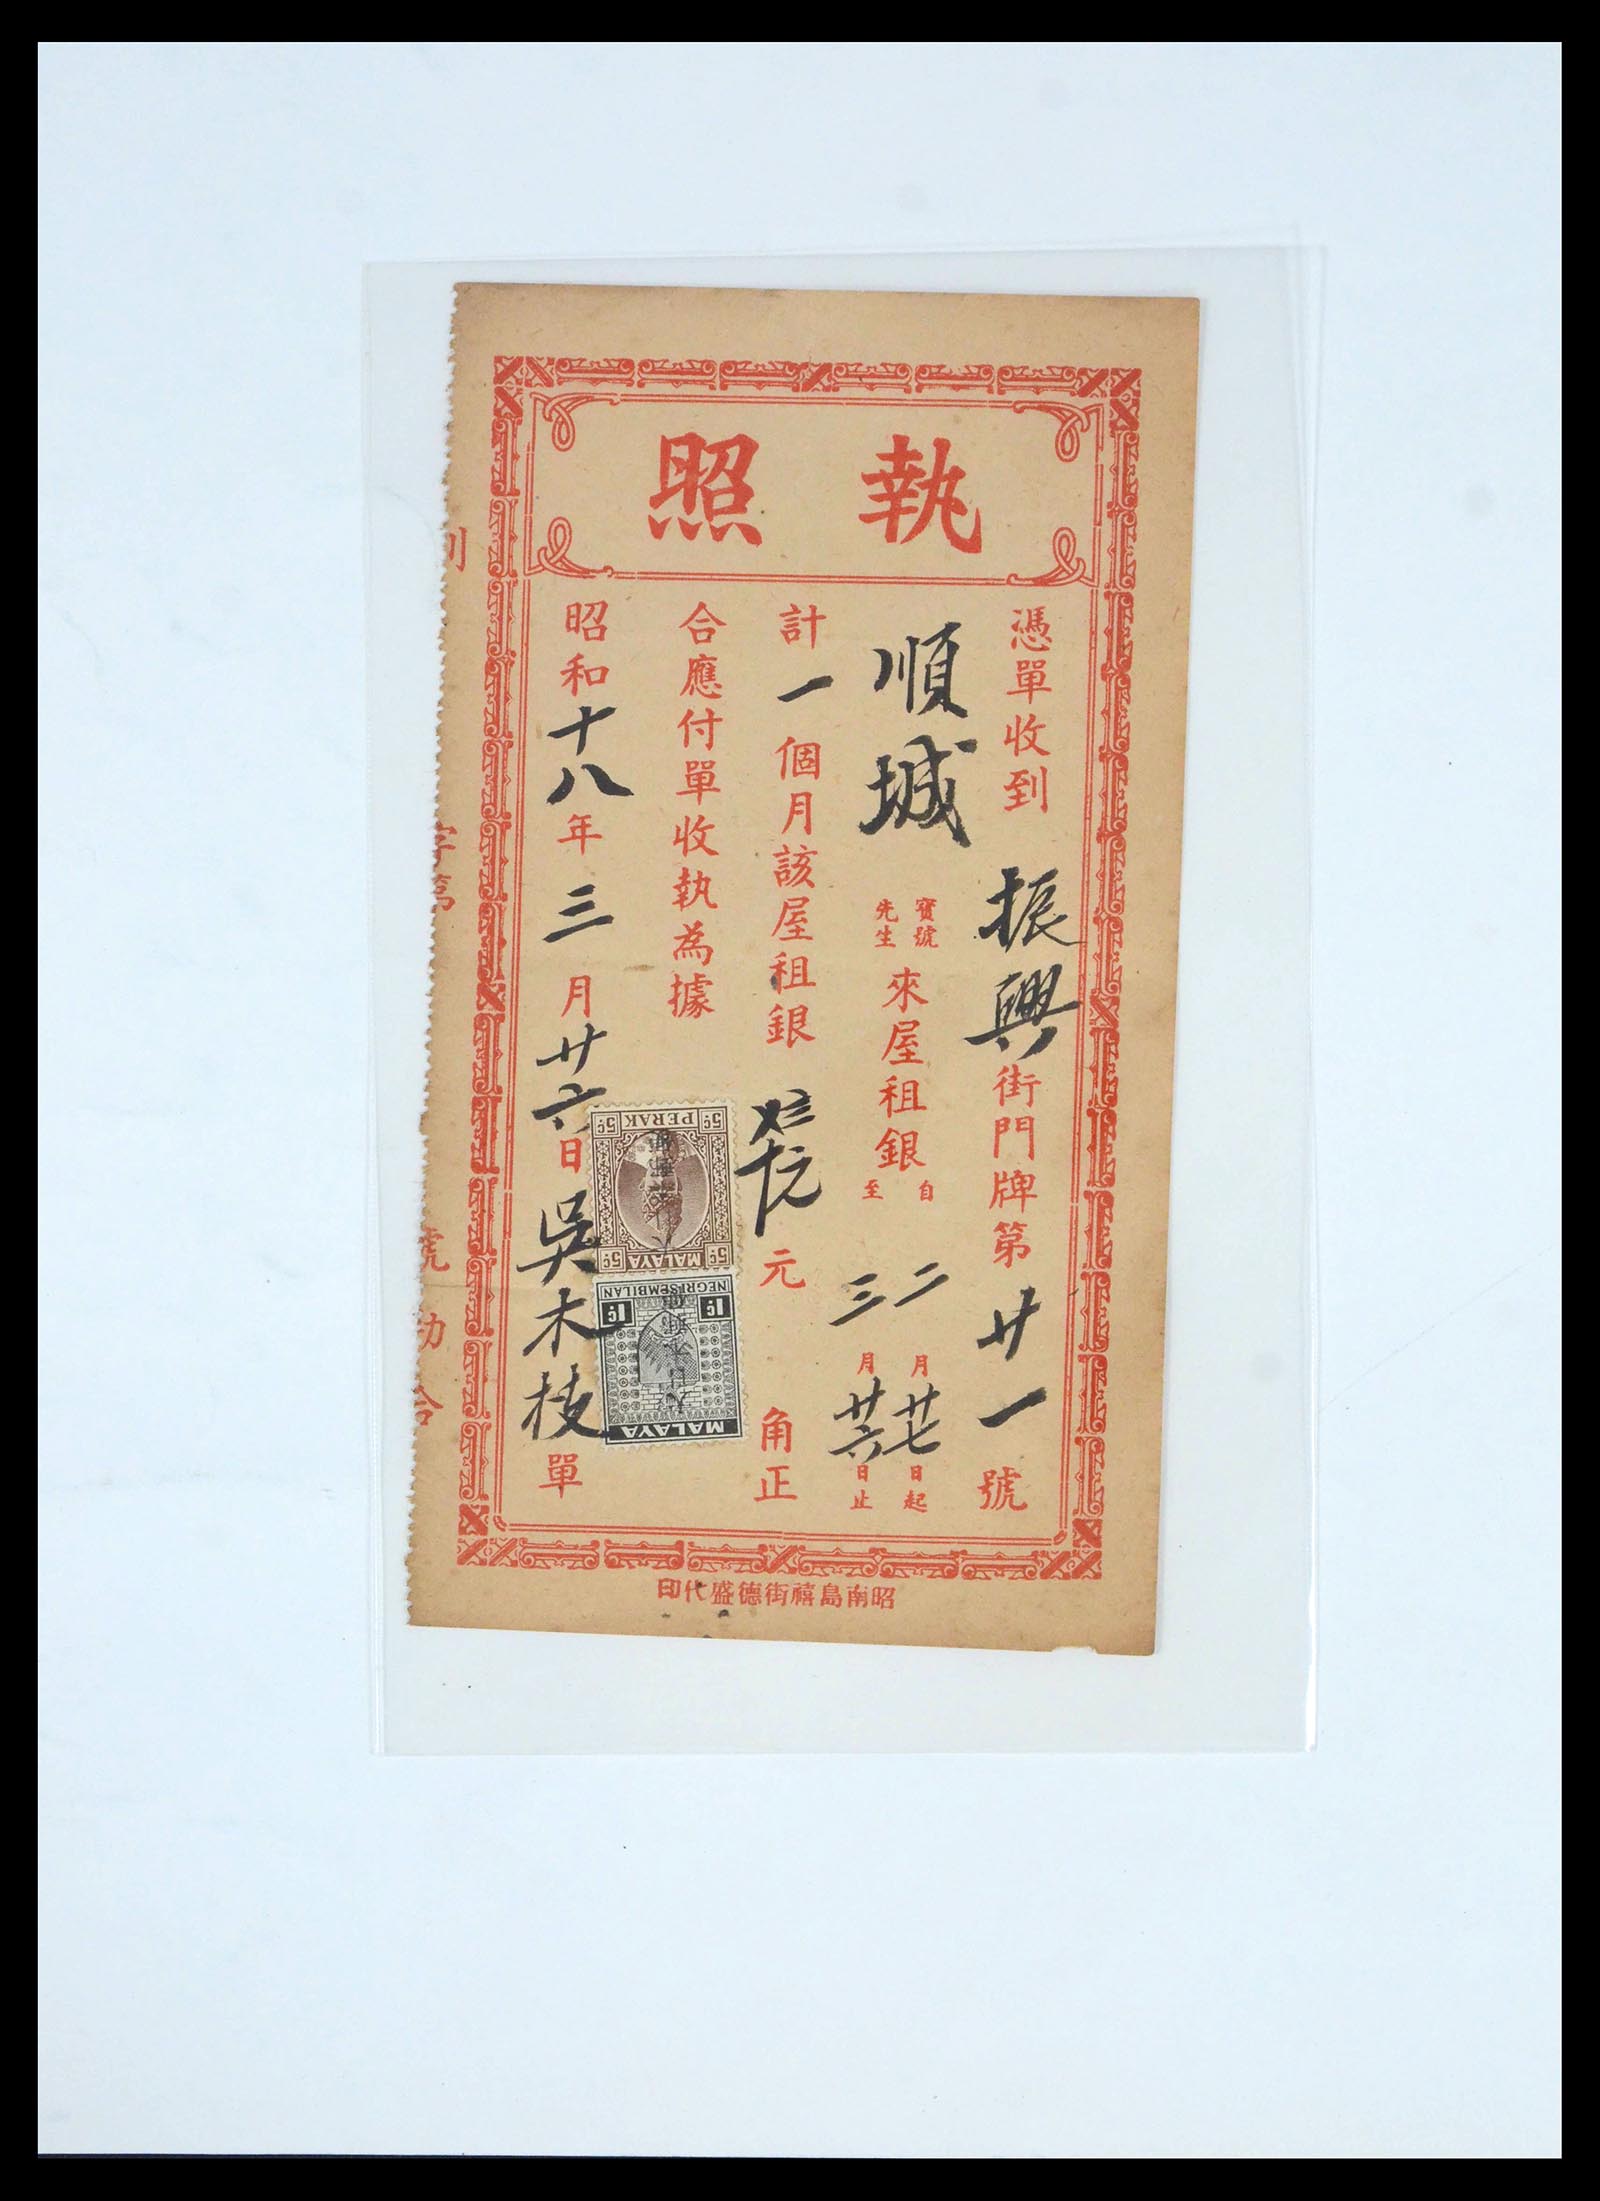 執照
憑單收到振興街門牌第廿一號
順城寶號先生來屋租銀自二月廿七日起至三月廿六日止
計一個月該屋租銀元角正
合應付單收執為據
昭和十八年三月廿六日吳木枝單
字第號勘合
5c PERAK 5c
5c MALAYA 5c
NEGRI SEMBILAN
1c 1c
MALAYA
昭南島禧街德盛代印